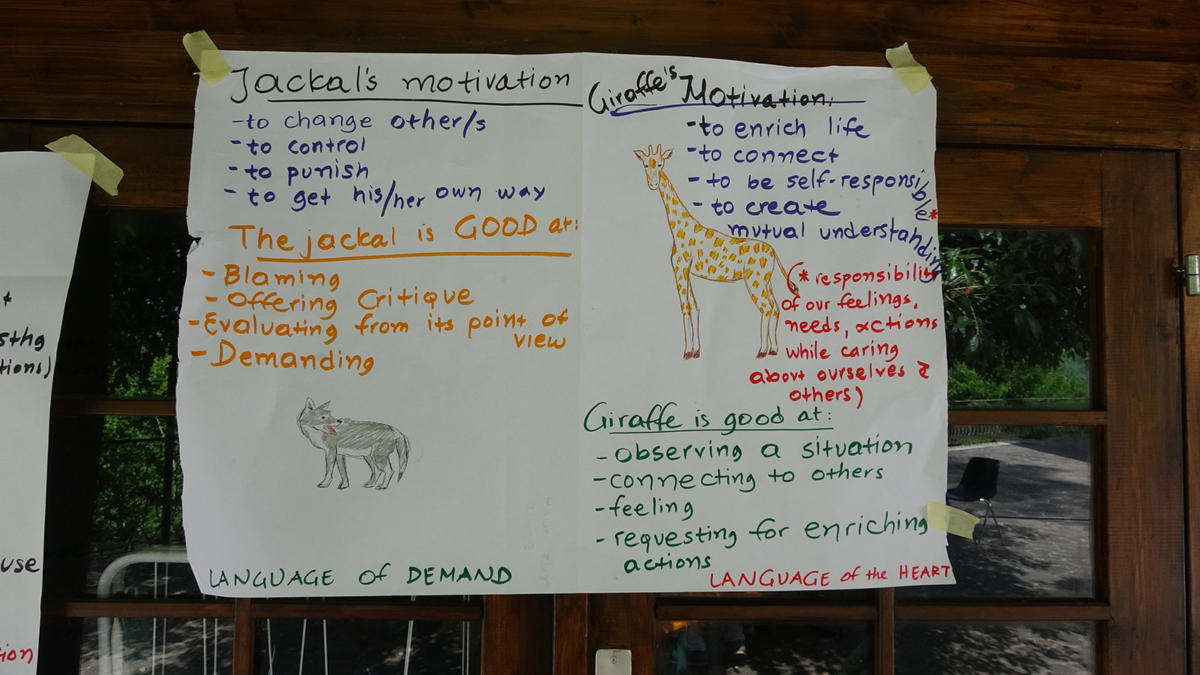 Jackal's motivation
-to change other/s
-to control
-to punish
-to get his/her own way
The jackal is GOOD at:
-Blaming
-Offering Critique
-Evaluating from its point of
view
-Demanding
LANGUAGE of DEMAND
Giraffe's Motivation:
-to enrich life
-to connect
-to be self-responsible*
-to create
mutual understanding
(* responsibility
of our feelings,
needs, actions
while caring
about ourselves &
others)
Giraffe is good at:
-observing a situation
-connecting to others
-feeling
-requesting for enriching
actions
LANGUAGE of the HEART
sthg
tions)
use
ion